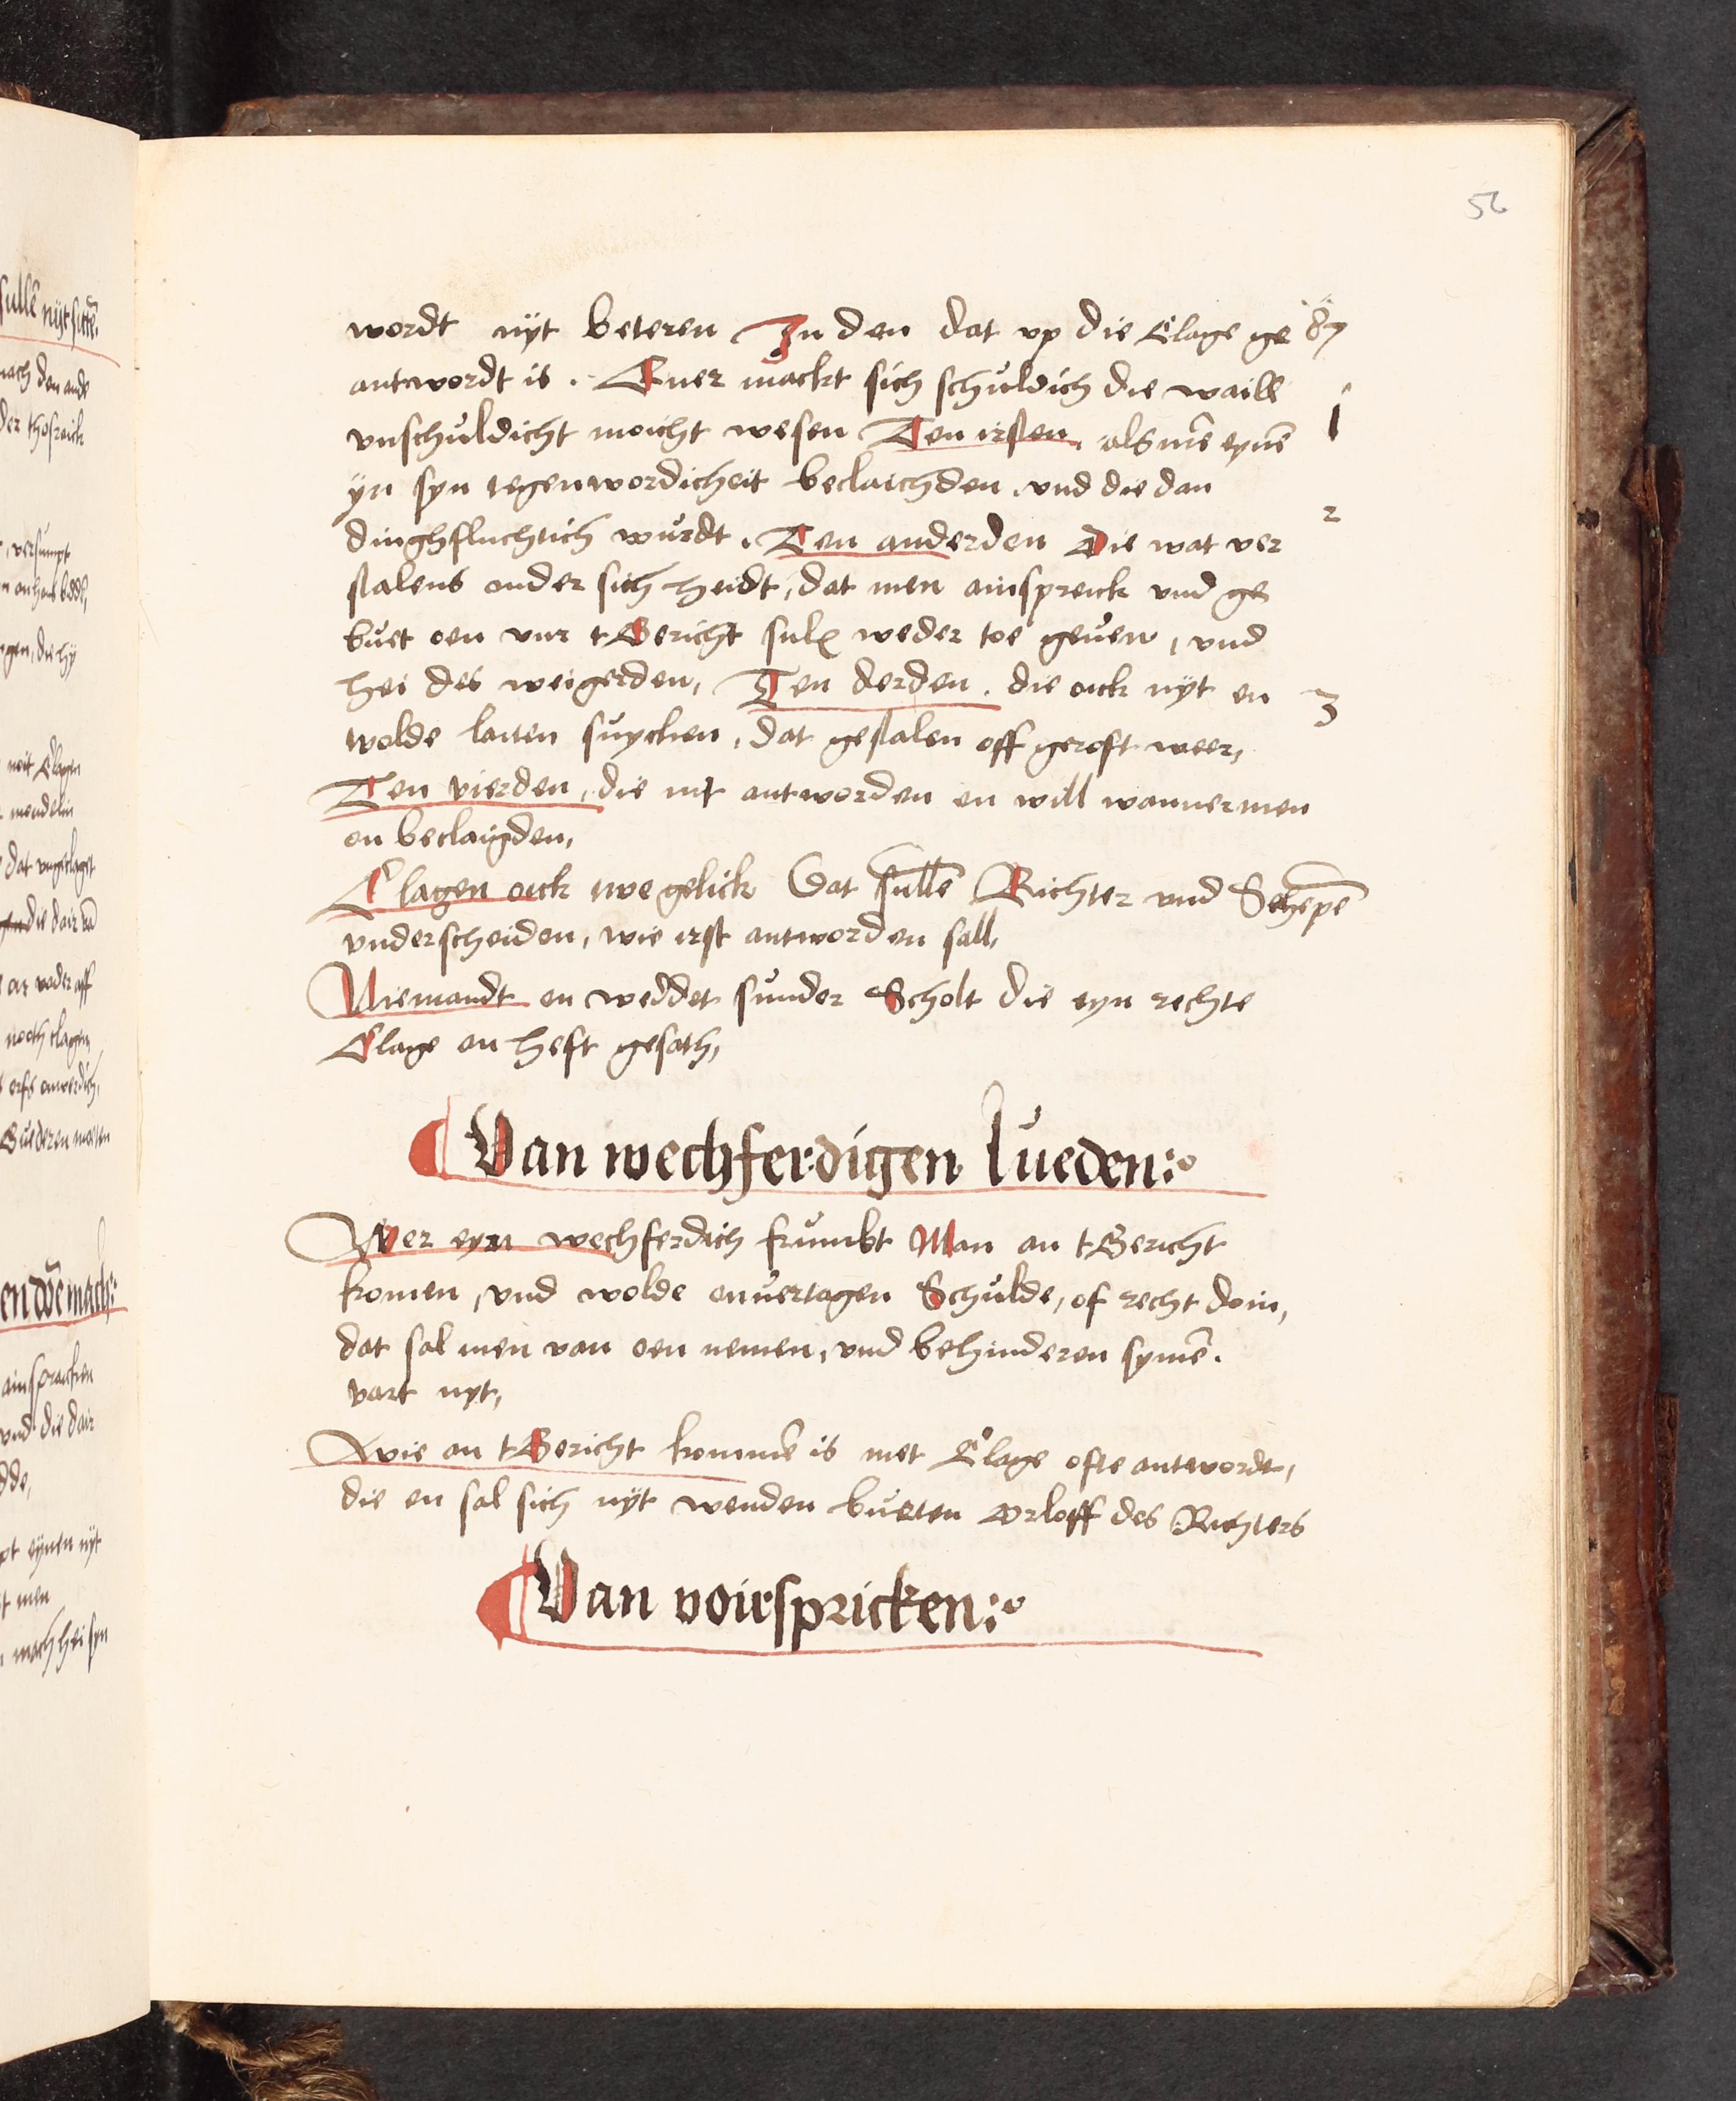 56
wordt nÿt beteren In den dat vp die Clage ge 87
antwordt is. Ener mackt sich schuldich die waill
vnschuldicht moicht wesen Ten irsten, als mē eynē 1
ÿn syn tegenwordicheit beclaichden, vnd die dan
dinghfluchtich wurdt. Ten anderden Die wat ver 2
stalens onder sich hedt, dat men ainspreick vnd ge
buet oen vur tGericht sulx weder toe geuen, vnd
hei des weigerden, Ten derden. die oick nÿt en 3
wolde laiten suycken, dat gestalen off geroft weer,
Ten vierden, die nit antworden en will wannermen
on beclaigden,
Clagen oick twe gelick Dat sullē Richter vnd Schepē
vnderscheiden, wie irst antworden sall,
Niemandt en weddet sunder Scholt die eyn rechte
Clage an heft gesath,
Van wechferdigen lueden:
Wer eyn wechferdich frumbt Man an tGericht
komen, vnd wolde onuertagen Schulde, of recht doin,
dat sal men van oen nemen, vnd behinderen synē.
vart nyt,
Wie an tGericht kommē is met Clage ofte antwordt,
die en sal sich nÿt wenden bueten Orloff des Richters
Van voirspricken: